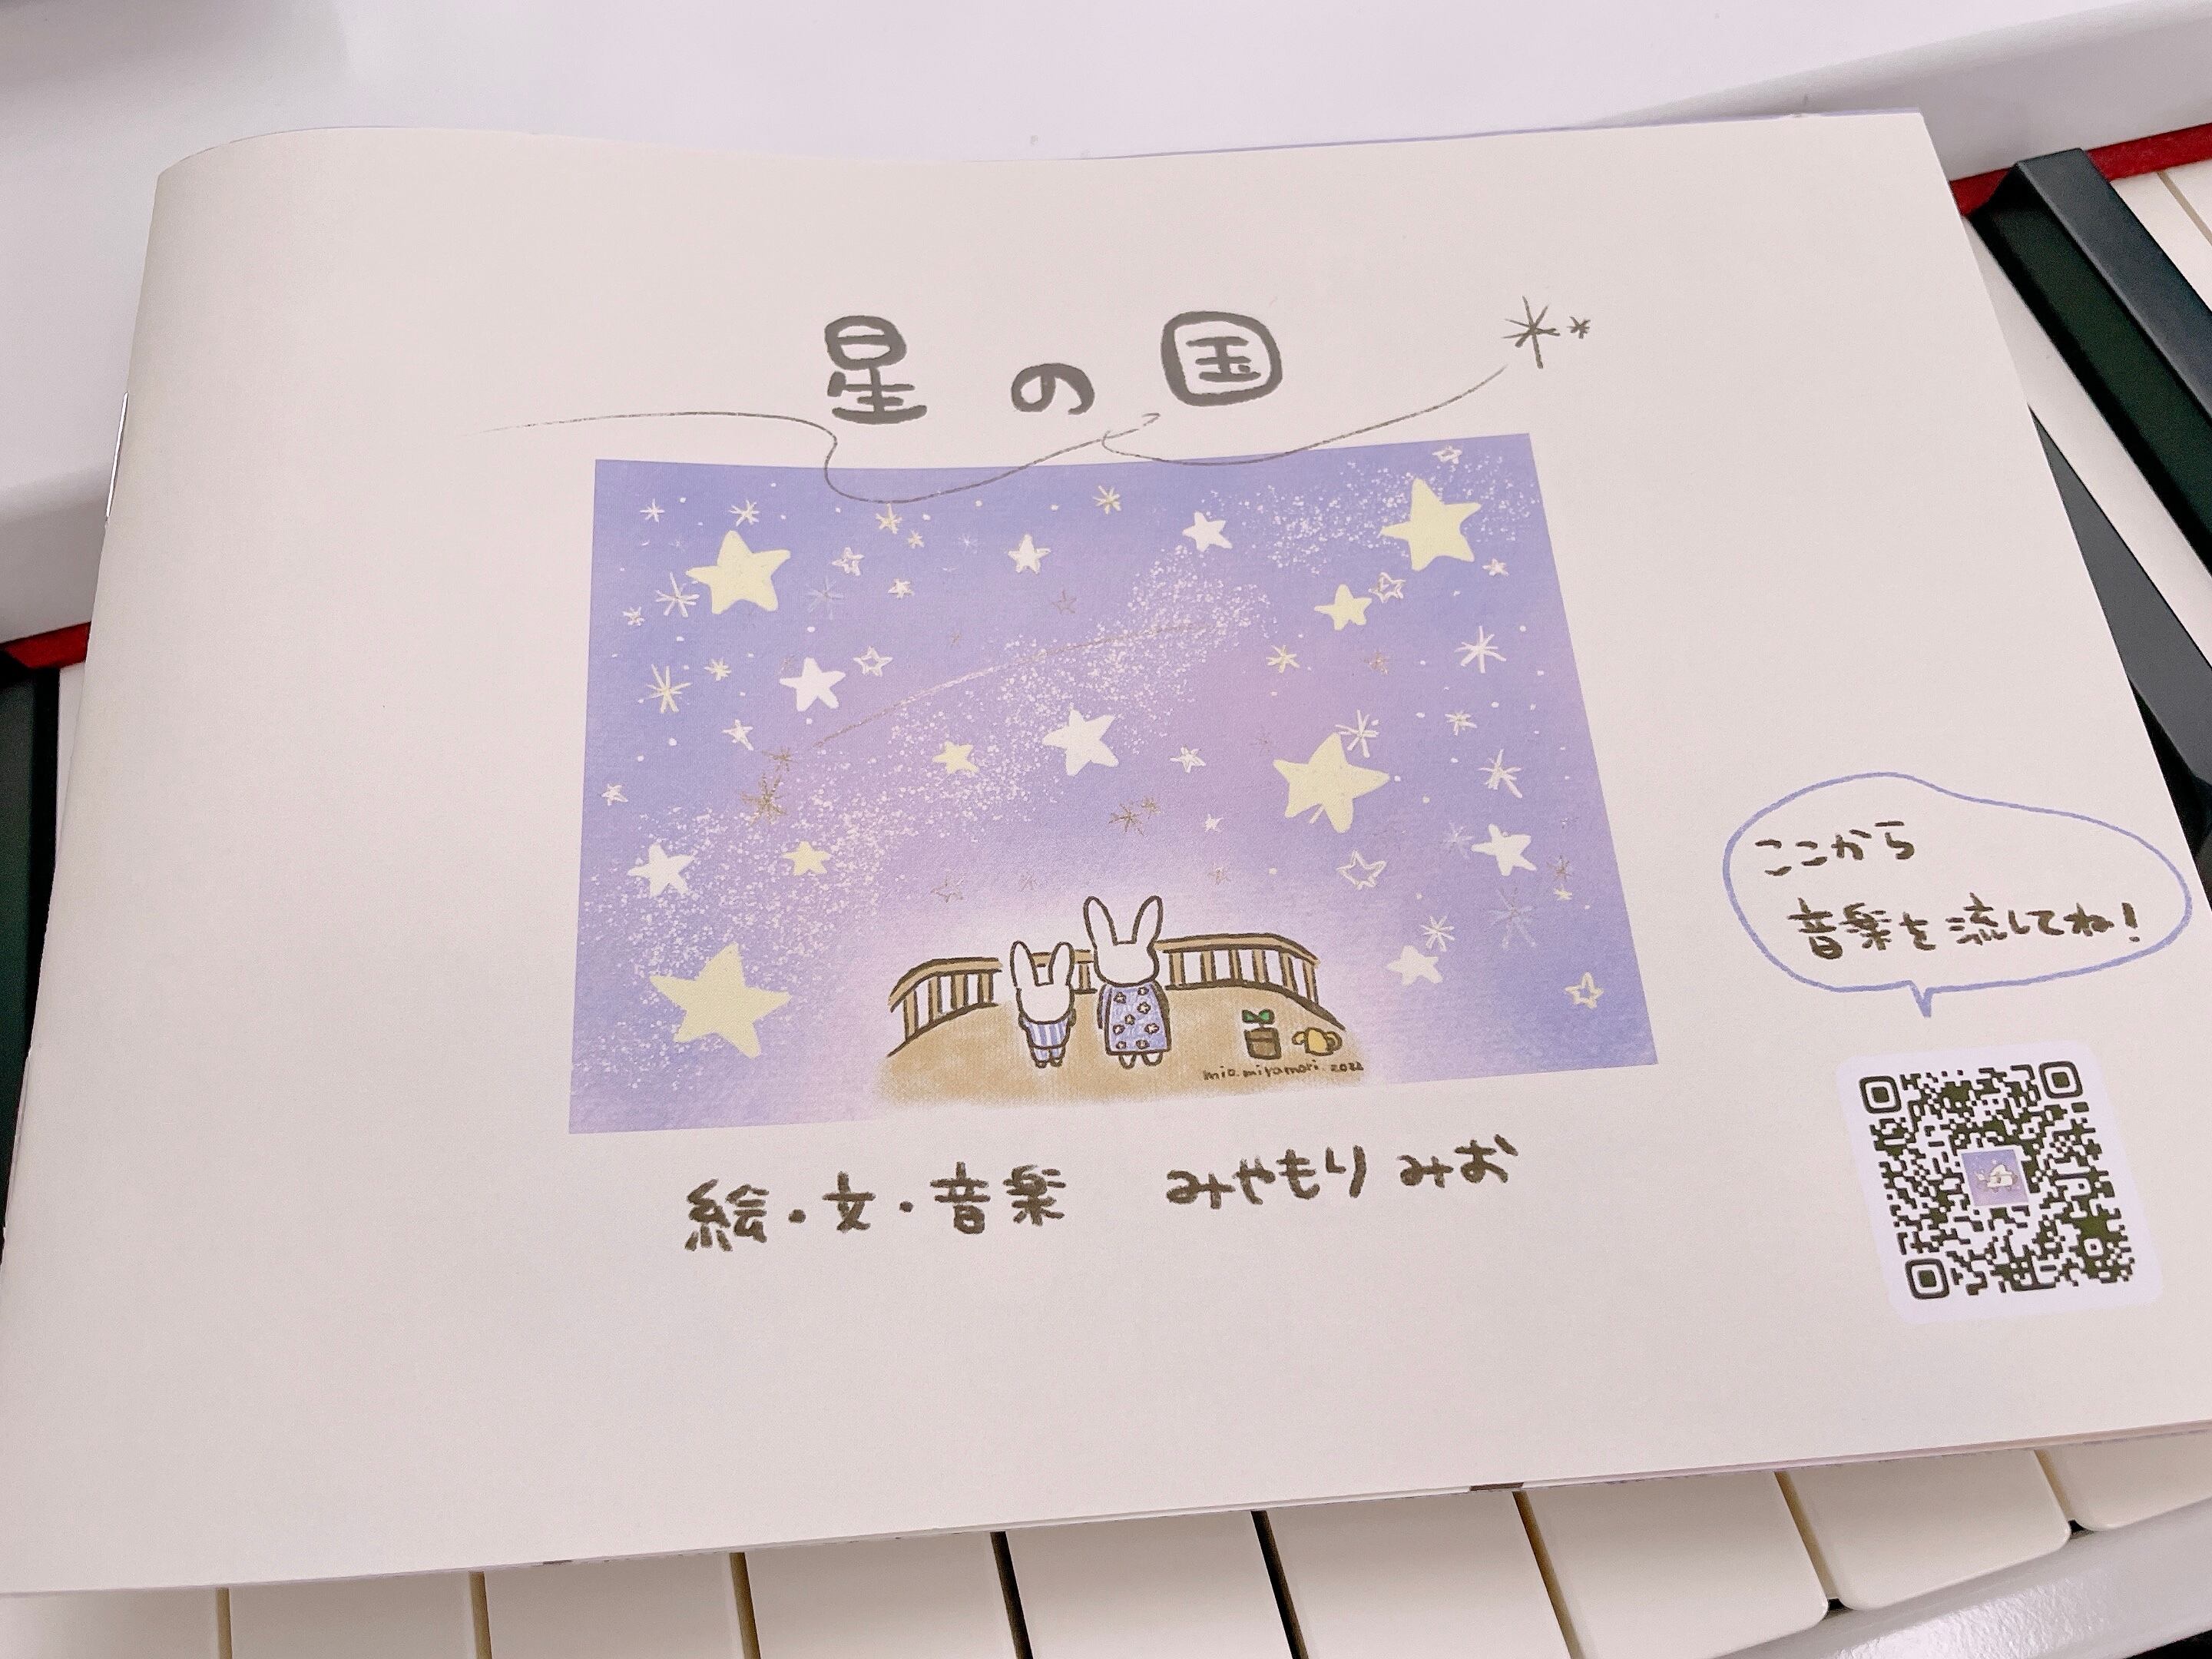 星の国
mio.miyamori.2022
絵・文・音楽 みやもり みお
ここから
音楽を流してね!